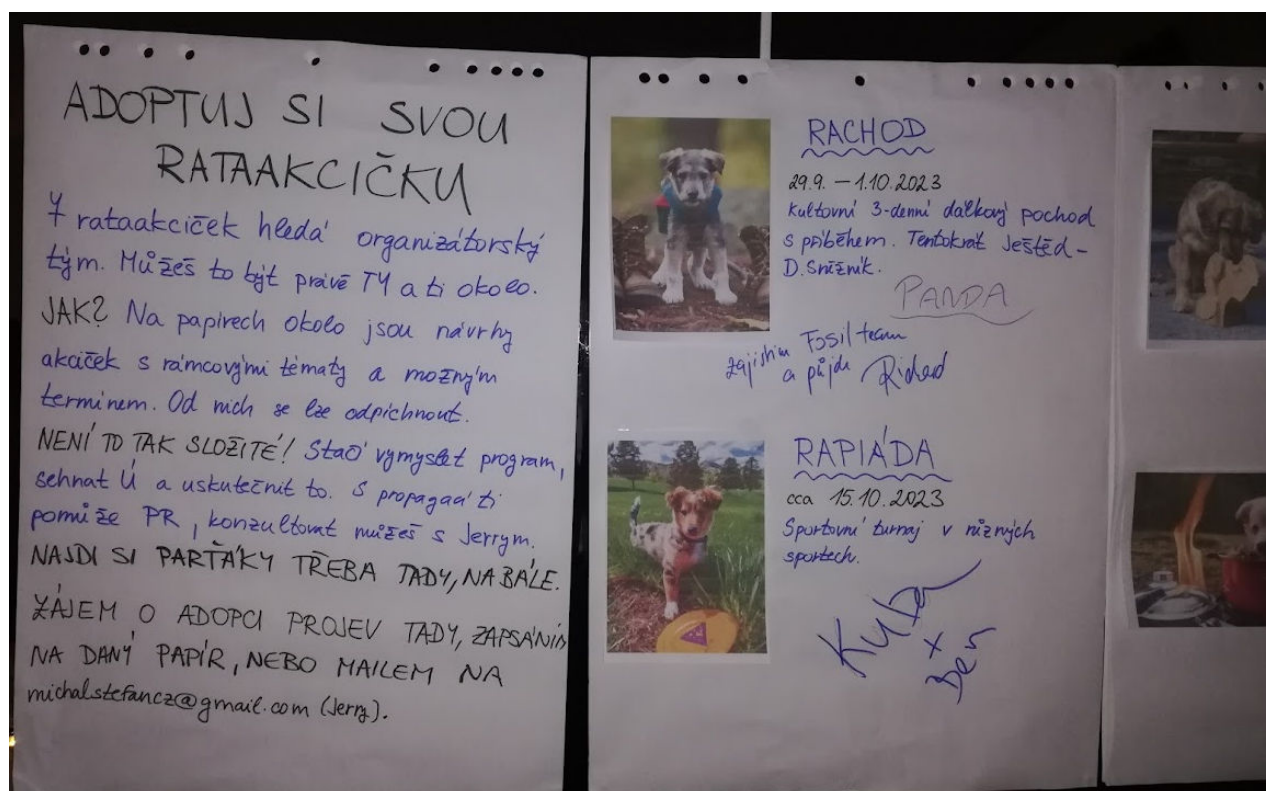 ADOPTUJ SI SVOU
RATAAKCIČKU
7 rataakciček hledá organizátorský
tým. Můžeš to být právě TY a ti okolo.
JAK? Na papírech okolo jsou návrhy
akciček s rámcovými tématy a možným
termínem. Od nich se lze odpíchnout.
NENÍ TO TAK SLOŽITÉ! Stačí vymyslet program,
sehnat Ú a uskutečnit to. S propagací ti
pomůže PR, konzultovat můžeš s Jerrym.
NAJDI SI PARŤÁKY TŘEBA TADY, NA BÁLE.
ZÁJEM O ADOPCI PROJEV TADY, ZAPSÁNÍM
NA DANÝ PAPÍR, NEBO MAILEM NA
michal.stefancz@gmail.com (Jerry).
RACHOD
29.9. – 1.10.2023
Kultovní 3-denní dálkový pochod
s příběhem. Tentokrát Ještěd –
D. Sněžník.
PANDA
zajistím Fosil team
a půjdu Richard
RAPIÁDA
cca 15.10.2023
Sportovní turnaj v různých
sportech.
Kuba
+
Ben